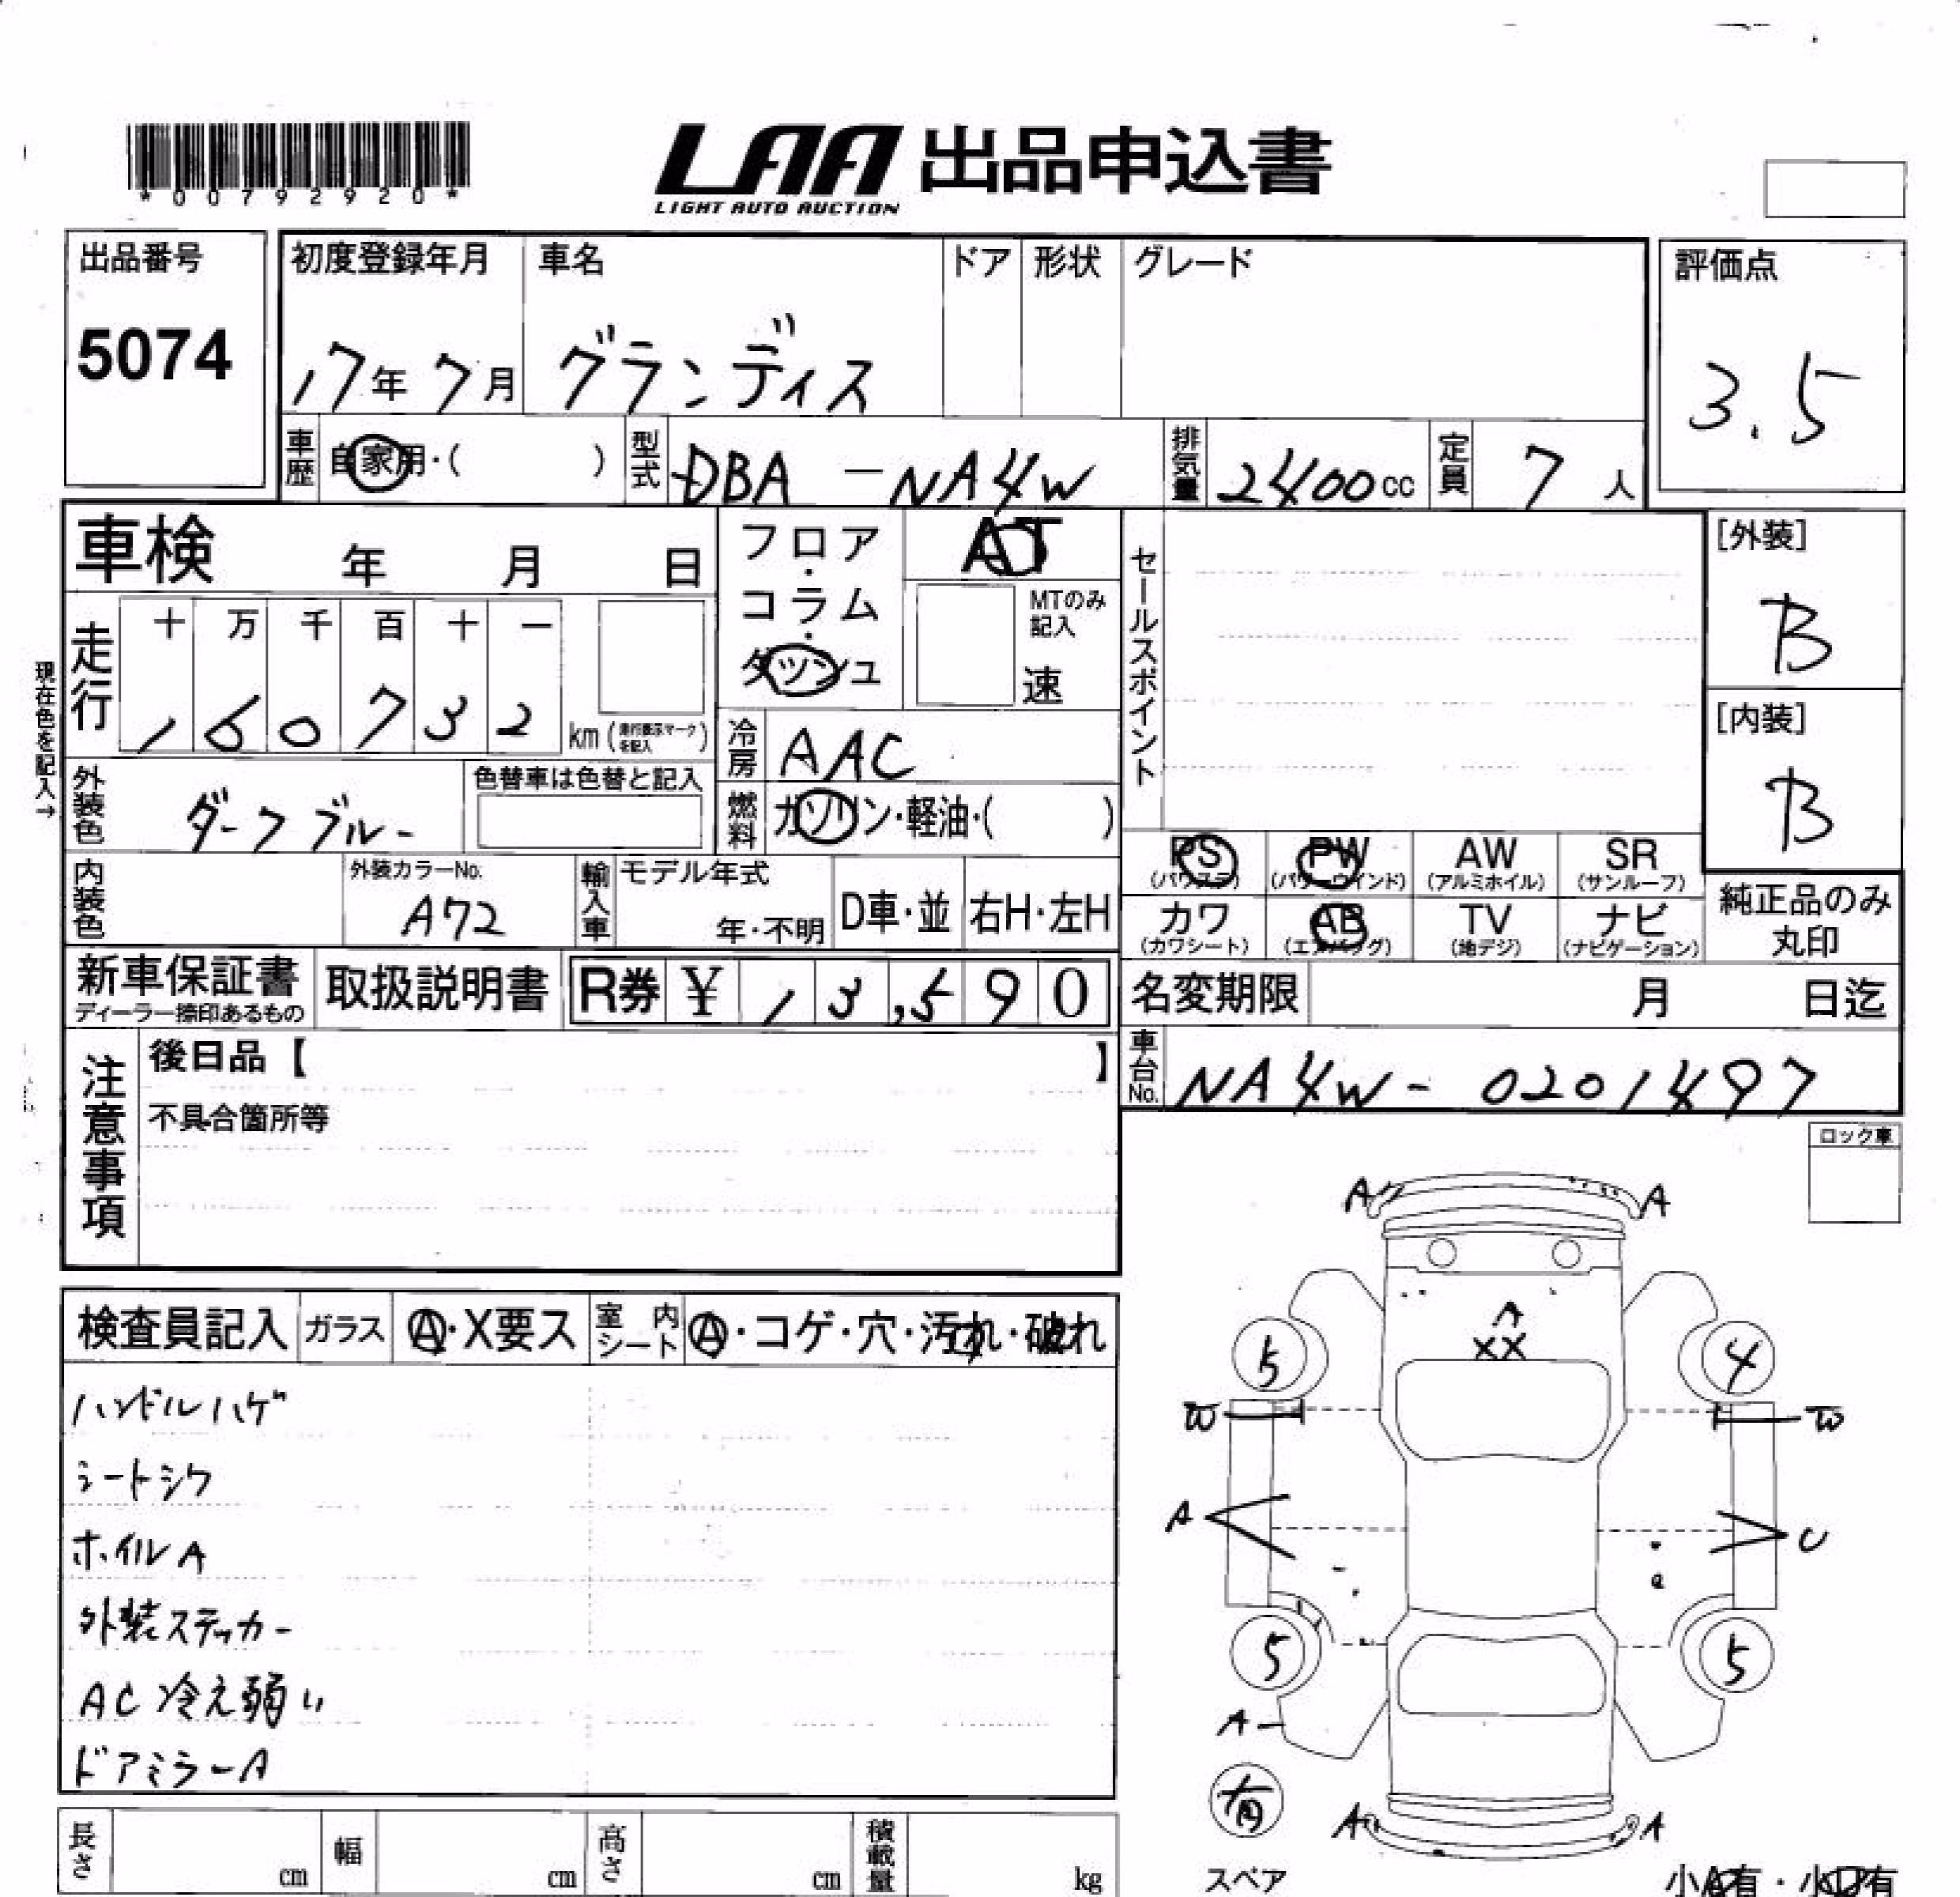 *00792920*
LAA 出品申込書
LIGHT AUTO AUCTION
出品番号
5074
初度登録年月
17年 7月
車名
グランディス
ドア
形状
グレード
評価点
3.5
車歴
自家用・( )
型式
DBA-NA4W
排気量
2400cc
定員
7人
車検 年 月 日
フロア・コラム・ダッシュ
AT
MTのみ記入
速
セールスポイント
[外装]
B
[内装]
B
現在色を記入→
走行
十 万 千 百 十 一
1 6 0 7 3 2
km(走行表示マークを記入)
冷房
AAC
外装色
ダークブルー
色替車は色替と記入
燃料
ガソリン・軽油・( )
PS (パワステ)
PW (パワーウインド)
AW (アルミホイル)
SR (サンルーフ)
内装色
外装カラーNo.
A72
輸入車
モデル年式
年・不明
D車・並
右H・左H
カワ (カワシート)
AB (エアバッグ)
TV (地デジ)
ナビ (ナビゲーション)
純正品のみ丸印
新車保証書
ディーラー捺印あるもの
取扱説明書
R券 ¥ 13,590
名変期限 月 日迄
注意事項
後日品【 】
不具合箇所等
車台No.
NA4W-0201497
ロック車
検査員記入
ガラス
A・X要ス
室内シート
A・コゲ・穴・汚れ・破れ
ハンドルハゲ
シートシワ
ホイルA
外装ステッカー
AC冷え弱い
ドアミラーA
A A
A
XX
5 4
W W
A U
5 5
A
有
A A
スペア
小A有・小凹有
長さ cm
幅 cm
高さ cm
積載量 kg